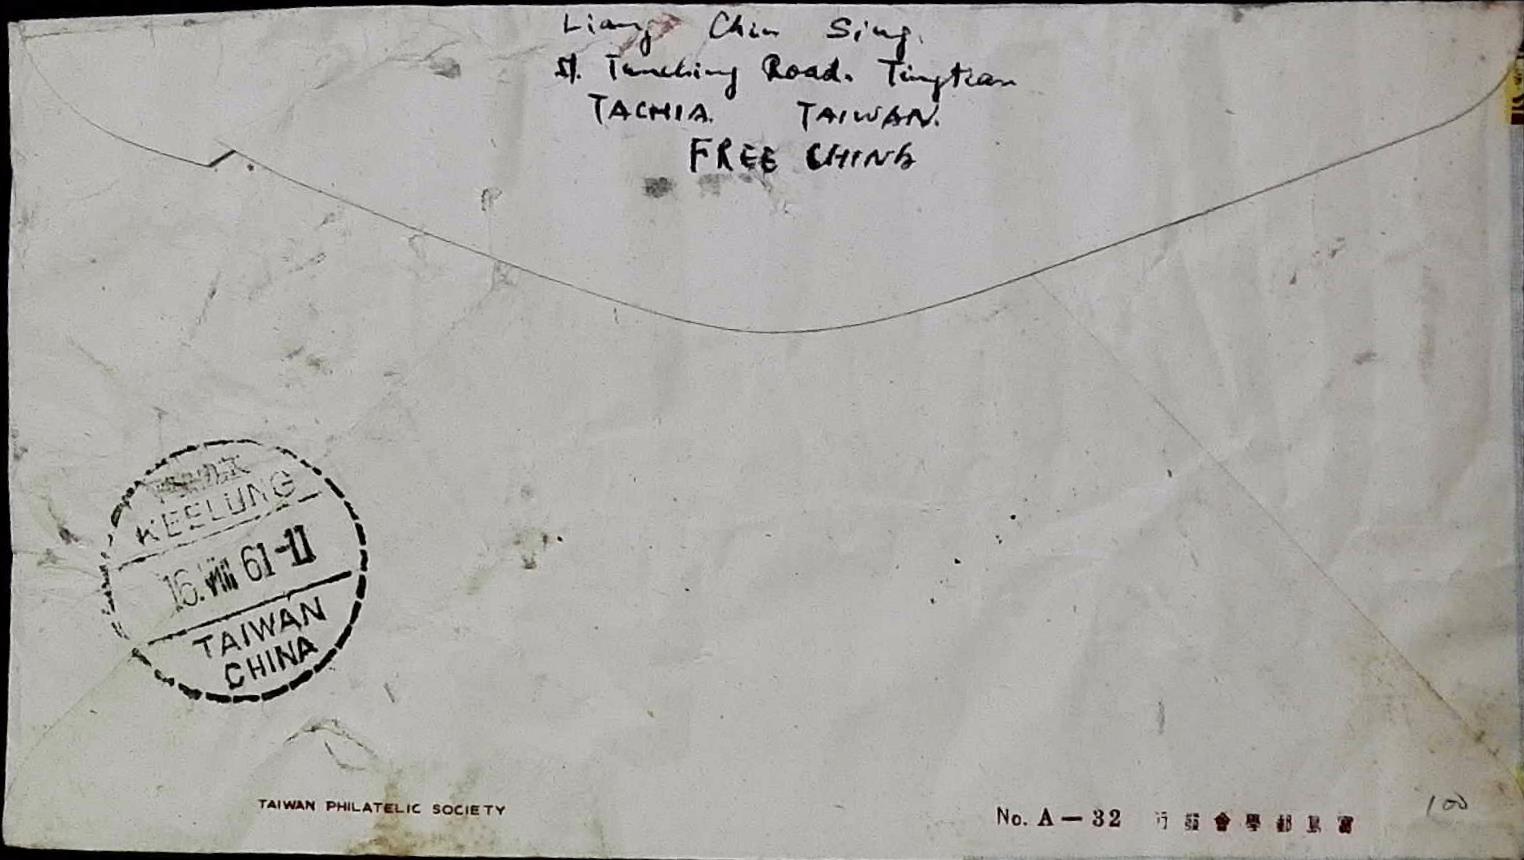 Liang Chin Sing.
51. Tunching Road. Tingtian
TACHIA. TAIWAN.
FREE CHINA
KEELUNG
16.VIII 61-11
TAIWAN
CHINA
TAIWAN PHILATELIC SOCIETY
No. A－32 行發會學郵島寳
100